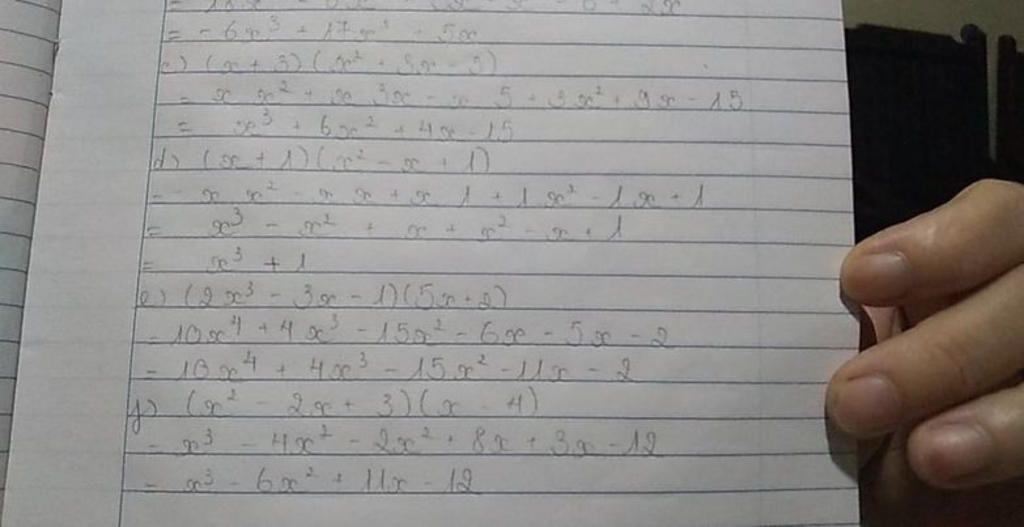 = - 6x³ + 17x² + 5x
c) (x + 3)(x² + 3x - 5)
= x x² + x 3x - x 5 + 3x² + 9x - 15
= x³ + 6x² + 4x - 15
d) (x + 1)(x² - x + 1)
= x x² - x x + x 1 + 1 x² - 1x + 1
= x³ - x² + x + x² - x + 1
= x³ + 1
e) (2x³ - 3x - 1)(5x + 2)
= 10x⁴ + 4x³ - 15x² - 6x - 5x - 2
= 10x⁴ + 4x³ - 15x² - 11x - 2
f) (x² - 2x + 3)(x - 4)
= x³ - 4x² - 2x² + 8x + 3x - 12
= x³ - 6x² + 11x - 12